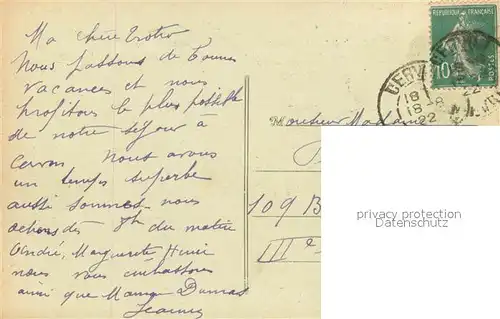 Ma chère
Nous passons de bonnes
vacances et nous
profitons le plus possible
de notre séjour à
Nous avons
un temps superbe
aussi sommes nous
dès 8h du matin
André, Marguerite
nous vous embrassons
ainsi que Maman Dumas
Jeanne
REPUBLIQUE FRANÇAISE
10
POSTES
18
18 - 8
22
22
Monsieur Madame
109 B
III e
privacy protection
Datenschutz